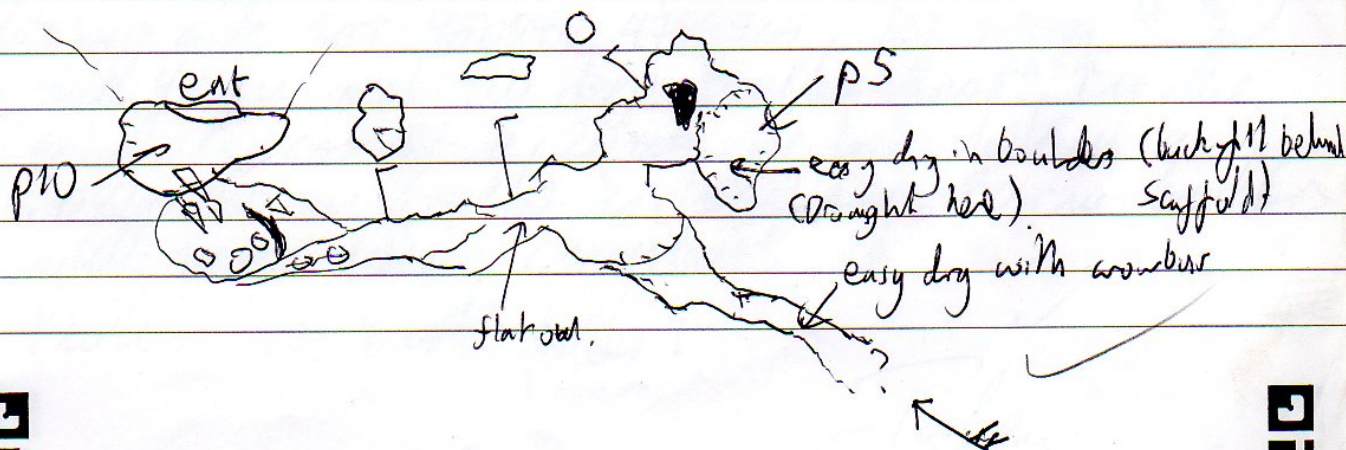 ent
p5
p10
easy dig in boulders (backfill behind
scaffold)
(Draught here).
easy dig with crowbar
flat out.
?